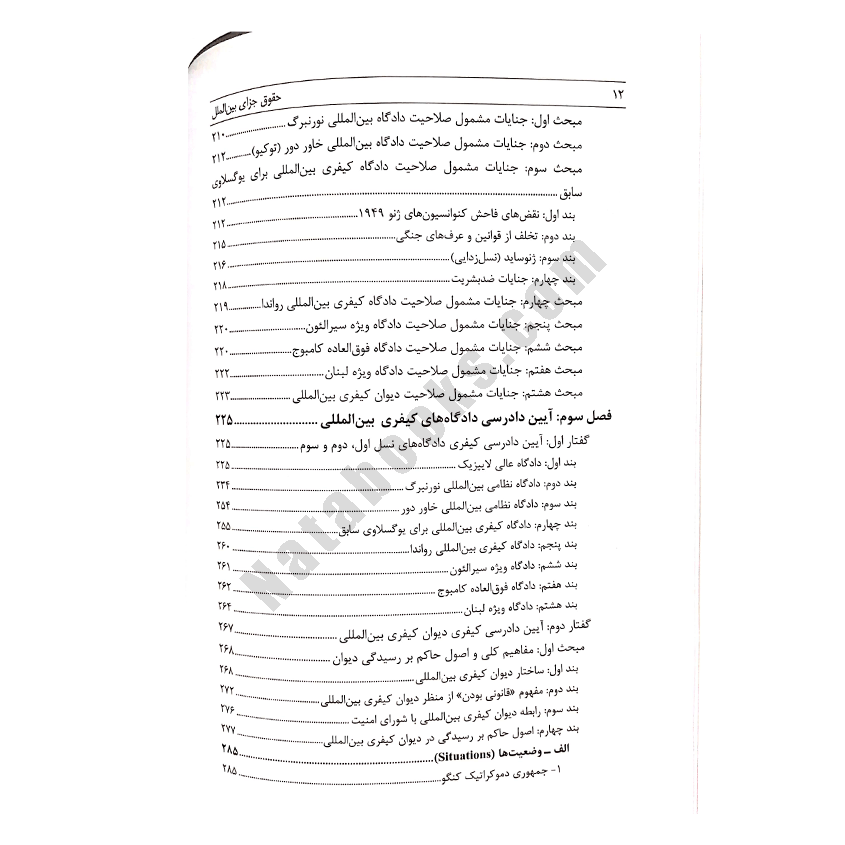 ۱۲ حقوق جزای بین‌الملل
مبحث اول: جنایات مشمول صلاحیت دادگاه بین‌المللی نورنبرگ ........ ۲۱۰
مبحث دوم: جنایات مشمول صلاحیت دادگاه بین‌المللی خاور دور (توکیو) ........ ۲۱۲
مبحث سوم: جنایات مشمول صلاحیت دادگاه کیفری بین‌المللی برای یوگسلاوی
سابق ........ ۲۱۲
بند اول: نقض‌های فاحش کنوانسیون‌های ژنو ۱۹۴۹ ........ ۲۱۲
بند دوم: تخلف از قوانین و عرف‌های جنگی ........ ۲۱۵
بند سوم: ژنوساید (نسل‌زدایی) ........ ۲۱۶
بند چهارم: جنایات ضدبشریت ........ ۲۱۸
مبحث چهارم: جنایات مشمول صلاحیت دادگاه کیفری بین‌المللی رواندا ........ ۲۱۹
مبحث پنجم: جنایات مشمول صلاحیت دادگاه ویژه سیرالئون ........ ۲۲۰
مبحث ششم: جنایات مشمول صلاحیت دادگاه فوق‌العاده کامبوج ........ ۲۲۰
مبحث هفتم: جنایات مشمول صلاحیت دادگاه ویژه لبنان ........ ۲۲۲
مبحث هشتم: جنایات مشمول صلاحیت دیوان کیفری بین‌المللی ........ ۲۲۳
فصل سوم: آیین دادرسی دادگاه‌های کیفری بین‌المللی ........ ۲۲۵
گفتار اول: آیین دادرسی کیفری دادگاه‌های نسل اول، دوم و سوم ........ ۲۲۵
بند اول: دادگاه عالی لایپزیک ........ ۲۲۵
بند دوم: دادگاه نظامی بین‌المللی نورنبرگ ........ ۲۳۴
بند سوم: دادگاه نظامی بین‌المللی خاور دور ........ ۲۵۴
بند چهارم: دادگاه کیفری بین‌المللی برای یوگسلاوی سابق ........ ۲۵۵
بند پنجم: دادگاه کیفری بین‌المللی رواندا ........ ۲۶۰
بند ششم: دادگاه ویژه سیرالئون ........ ۲۶۱
بند هفتم: دادگاه فوق‌العاده کامبوج ........ ۲۶۲
بند هشتم: دادگاه ویژه لبنان ........ ۲۶۴
گفتار دوم: آیین دادرسی کیفری دیوان کیفری بین‌المللی ........ ۲۶۷
مبحث اول: مفاهیم کلی و اصول حاکم بر رسیدگی دیوان ........ ۲۶۸
بند اول: ساختار دیوان کیفری بین‌المللی ........ ۲۶۸
بند دوم: مفهوم «قانونی بودن» از منظر دیوان کیفری بین‌المللی ........ ۲۷۲
بند سوم: رابطه دیوان کیفری بین‌المللی با شورای امنیت ........ ۲۷۶
بند چهارم: اصول حاکم بر رسیدگی در دیوان کیفری بین‌المللی ........ ۲۷۷
الف ـ وضعیت‌ها (Situations) ........ ۲۸۵
۱- جمهوری دموکراتیک کنگو ........ ۲۸۵
Natabooks.com